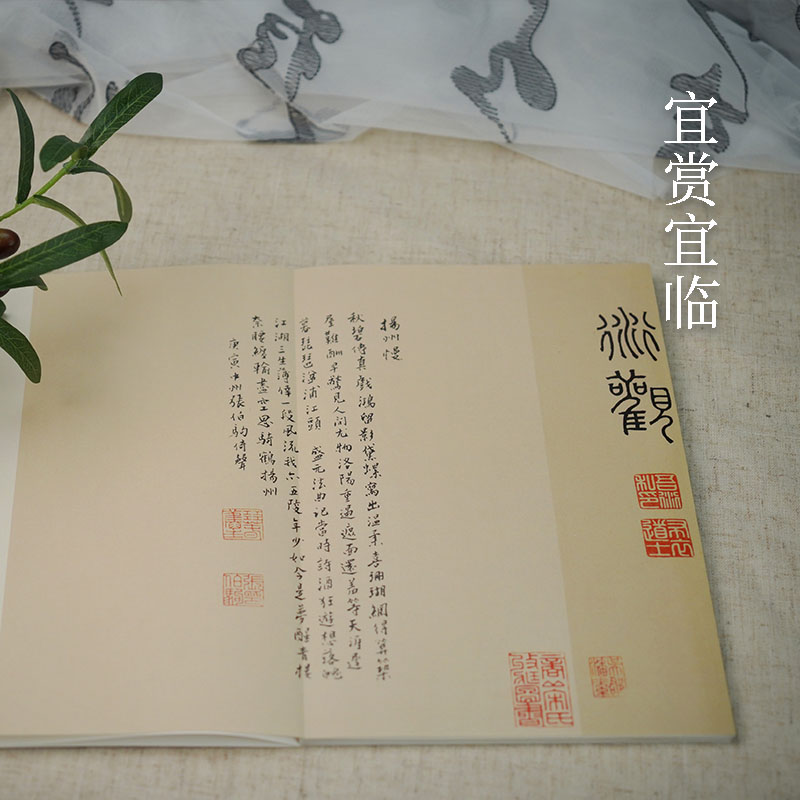 宜赏宜临
衍觀
揚州慢
秋碧傳真戲鴻留影黛螺寫出温柔喜珊瑚網得算築
屋難酬早驚見人間尤物洛陽重遇遮面還羞等天涯遲
暮琵琶湓浦江頭 盛元法曲記當時詩酒狂遊想落魄
江湖三生薄倖一段風流我亦五陵年少如今是夢醒青樓
奈腰纏輸盡空思騎鶴揚州
庚寅中州張伯駒倚聲